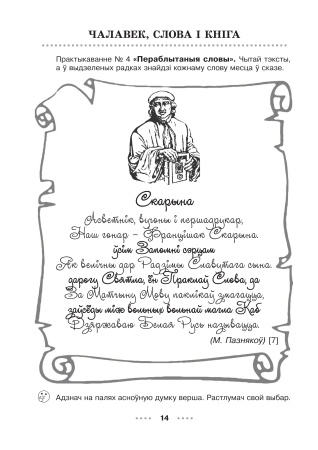 ЧАЛАВЕК, СЛОВА І КНІГА
Практыкаванне № 4 «Пераблытаныя словы». Чытай тэксты,
а ў выдзеленых радках знайдзі кожнаму слову месца ў сказе.
Скарына
Асветнік, вучоны і першадрукар,
Наш гонар – Францішак Скарына.
ўсім Запомні сэрцам
Як велічны дар Радзімы Славутага сына.
дарогу Святла, ён Праклаў Слова, да
За Матчыну Мову паклікаў змагацца,
заўсёды між вольных вольнай магла Каб
Дзяржаваю Белая Русь называцца.
(М. Пазнякоў) [7]
Адзнач на палях асноўную думку верша. Растлумач свой выбар.
14